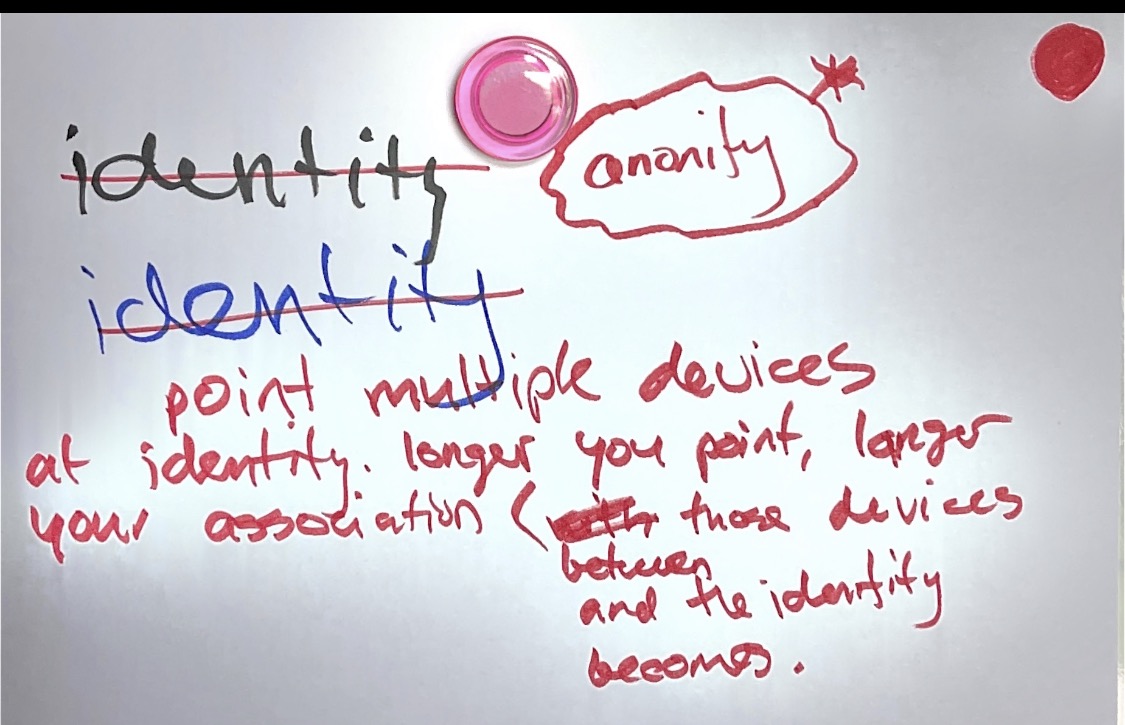 identity
anonity
identity
point multiple devices
at identity. longer you point, longer
your association ( those devices
between
and the identity
becomes.